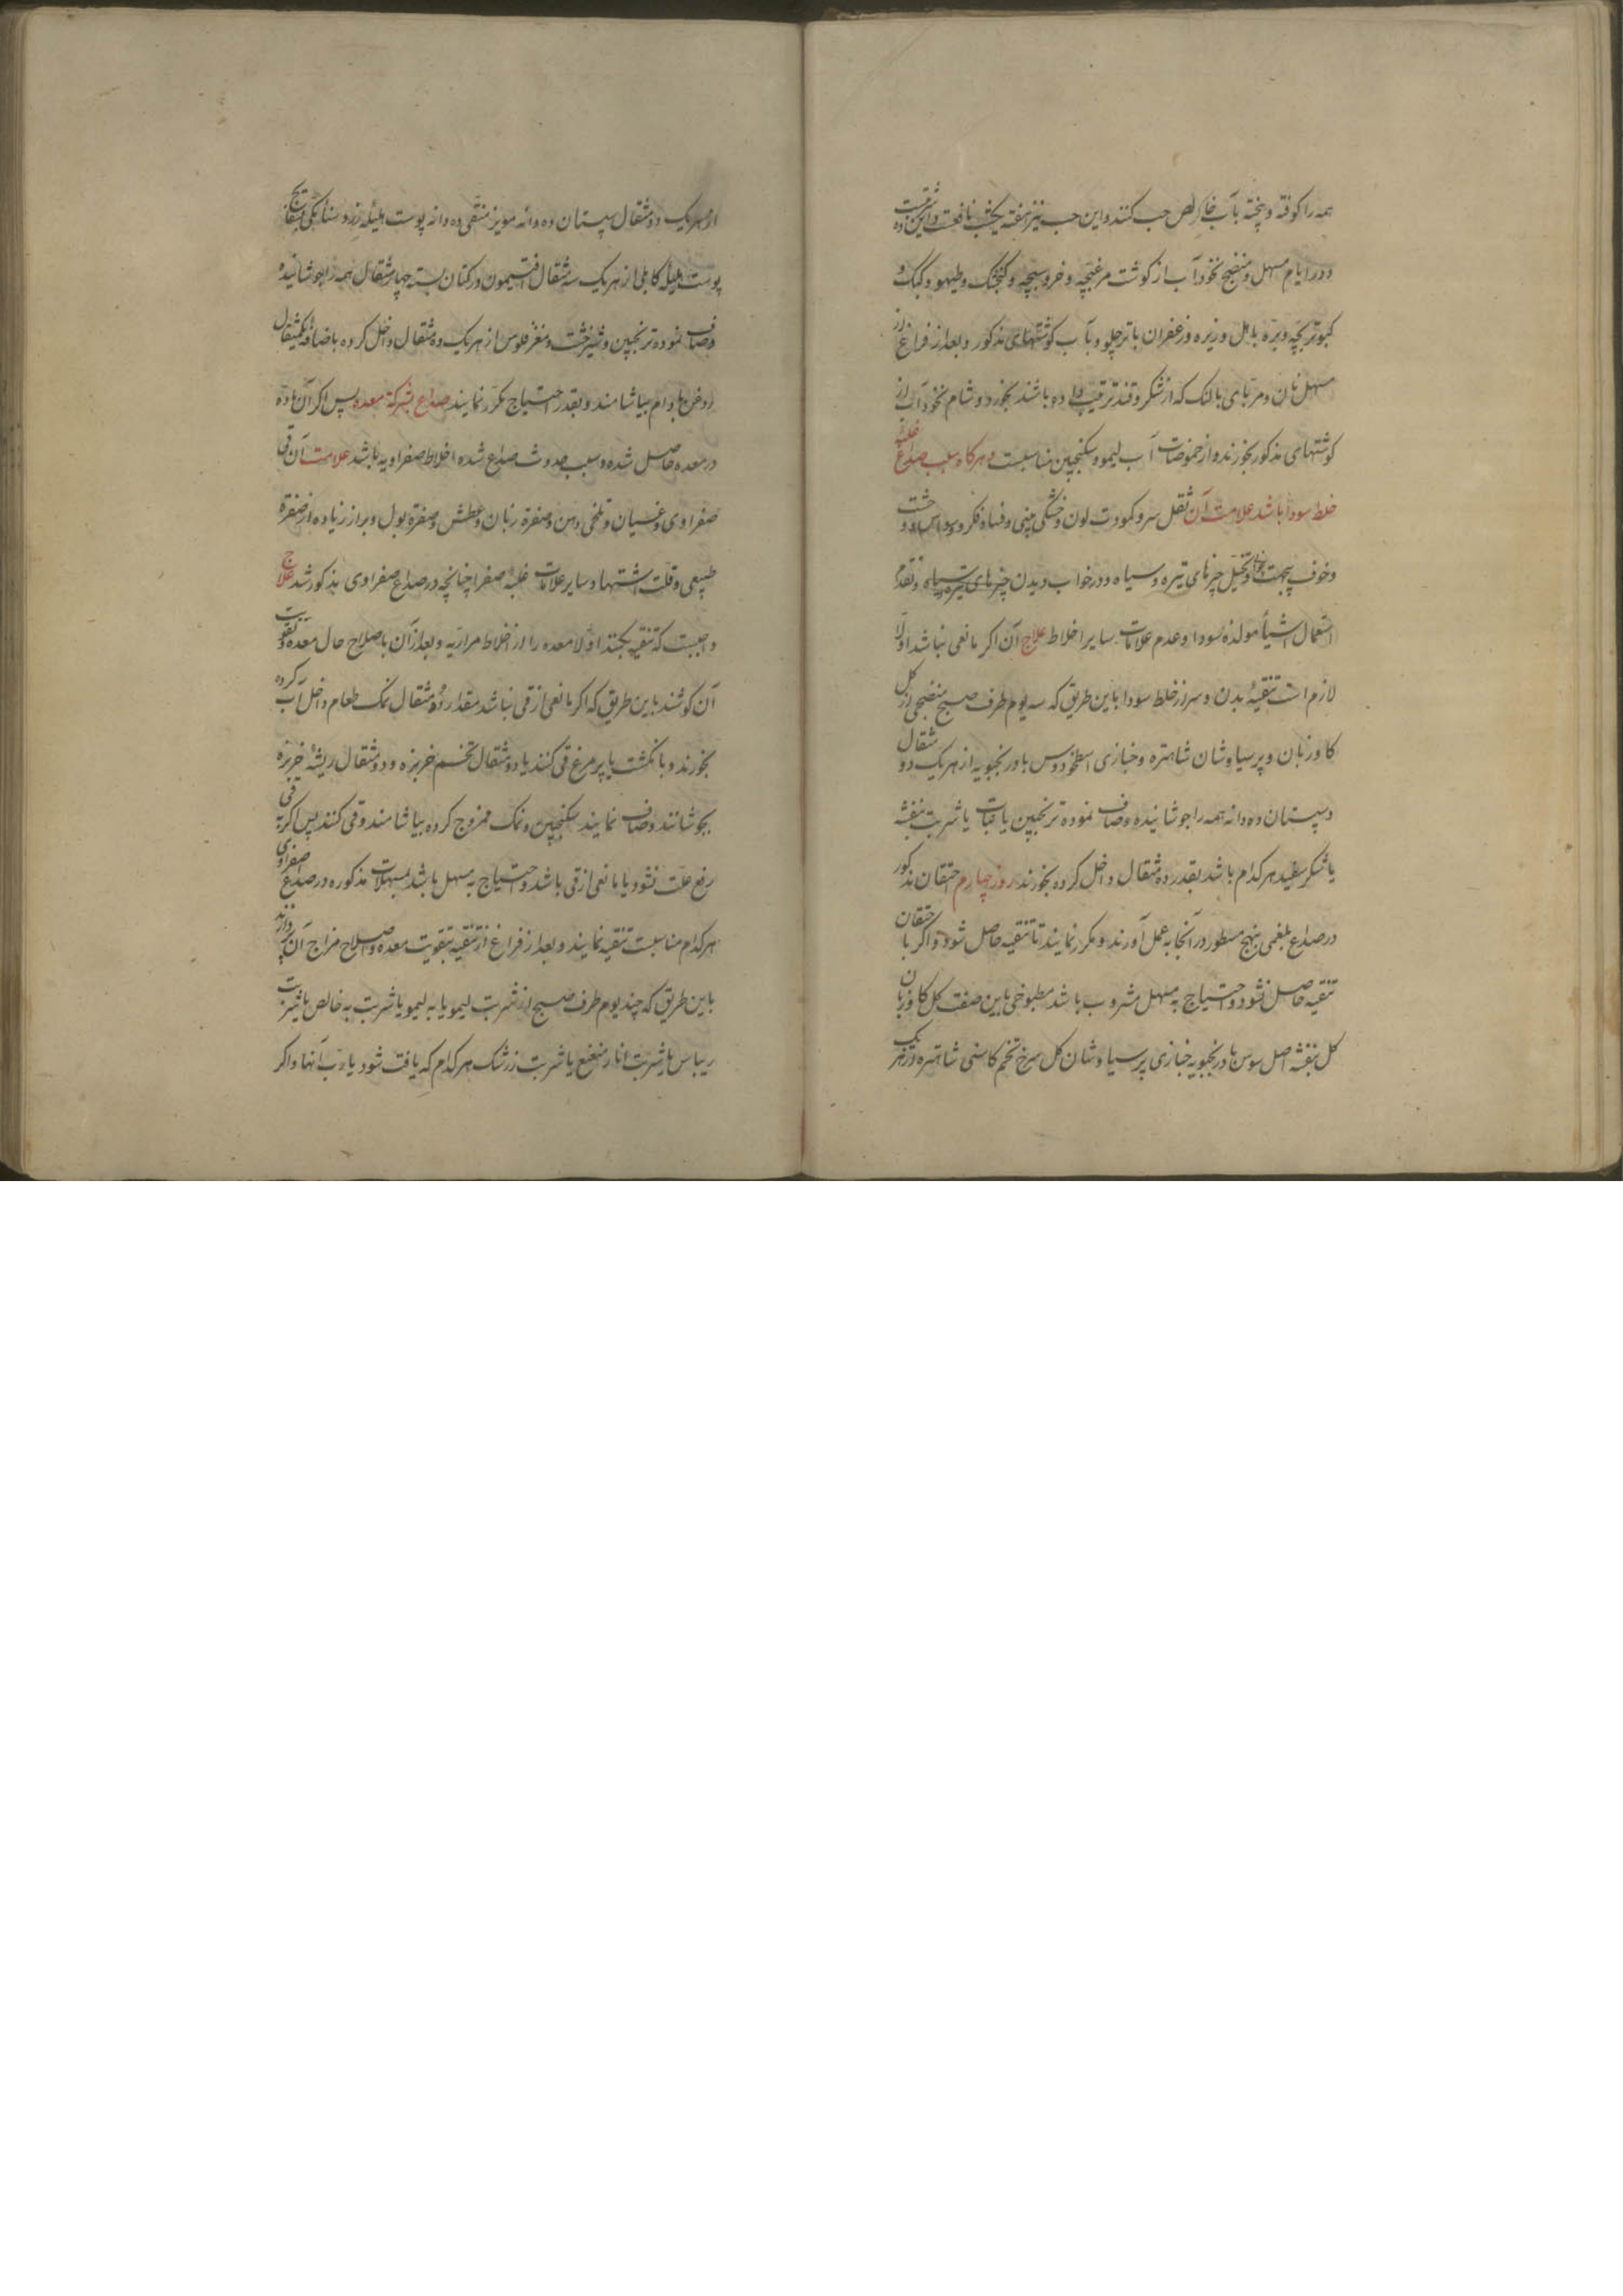 همه را کوفته و پخته بآب خالص حب کنند و این حب نیز هفته یکشب نافعست و این شربت ده
و در ایام مسهل و منضج نخودآب از گوشت مرغبچه و خروسبچه و کنجشک و طیهو و کبک و
کبوتر بچه و بره با هل و زیره و زعفران با تر چلو و بآب گوشتهای مذکور و بعد از فراغ از
مسهل نان و مربای بالنک که از شکر و قند ترتیب داده باشند بخورد و شام نخودآب از
کوشتهای مذکور بخورند و از حموضات آب لیمو و سکنجبین مناسبست و هرکاه سبب صداع غلبهٔ
خلط سودا باشد علامت آن ثقل سر و کمودت لون و خشکی بینی و فساد فکر و وسواس و وحشت
و خوف بیجهت و تخیل چیزهای تیره و سیاه و در خواب دیدن چیزهای تیره و سیاه و تقدم
استعمال اشیأ مولدهٔ سودا و عدم علامات سایر اخلاط علاج آن اکر مانعی نباشد اولا
لازم است تنقیهٔ بدن و سر از خلط سودا باین طریق که سه یوم طرف صبح منضجی از کل
کاوزبان و پرسیاوشان شاهتره و خبازی اسطخودوس بادرنجبویه از هر یک دو مثقال
و سپستان ده دانه همه را جوشانیده و صاف نموده ترنجبین یا نبات یا شربت بنفشه
یا شکر سفید هر کدام باشد بقدر ده مثقال داخل کرده بخورند روز چهارم احتقان مذکور
در صداع بلغمی بنهج مسطور در آنجا به عمل آورند و مکرر نمایند تا تنقیه حاصل شود و اکر با احتقان
تنقیه حاصل نشود و احتیاج به مسهل مشروب باشد مطبوخی باین صفت کل کاوزبان
کل بنفشه اصل سوس بادرنجبویه خبازی پرسیاوشان کل سرخ تخم کاسنی شاهتره از هر یک
از هر یک دو مثقال سپستان ده دانه مویز منقی ده دانه پوست هلیله زرد سنأ مکی
پوست هلیلهٔ کابلی از هر یک سه مثقال افتیمون در کتان بسته چهار مثقال همه را جوشانیده
و صاف نموده ترنجبین و شیرخشت و مغز فلوس از هر یک ده مثقال داخل کرده باضافهٔ یکمثقال
روغن بادام بیاشامند و بقدر احتیاج مکرر نمایند صداع بشرکة معده پس اکر آن ماده
در معده حاصل شده و سبب حدوث صداع شده اخلاط صفراویه باشد علامت آن قی
صفراوی و غثیان و تلخی دهن و صفرة زبان و عطش و صفرة بول و براز زیاده از صفرة
طبیعی و قلت اشتها و سایر علامات غلبهٔ صفرا چنانچه در صداع صفراوی مذکور شد علاج
واجبست که تنقیه بکنند اولا معده را از اخلاط مراریه و بعد از آن باصلاح حال معده و تقویت
آن کوشند باین طریق که اکر مانعی از قی نباشد مقدار دو مثقال نمک طعام داخل آب کرده
بخورند و بانکشت یا پر مرغ قی کنند یا دو مثقال تخم خربزه و دو مثقال ریشهٔ خربزه
بجوشانند و صاف نمایند سکنجبین و نمک ممزوج کرده بیاشامند و قی کنند پس اکر به قی
رفع علت نشود یا مانعی از قی باشد و احتیاج به مسهل باشد بمسهلات مذکوره در صداع صفراوی
هر کدام مناسبست تنقیه نمایند و بعد از فراغ از تنقیه بتقویت معده و اصلاح مزاج آن پردازند
باین طریق که چند یوم طرف صبح از شربت لیمو یا به لیمو یا شربت به خالص یا شربت
ریباس یا شربت انار منعنع یا شربت زرشک هر کدام که یافت شود یا رب آنها و اکر